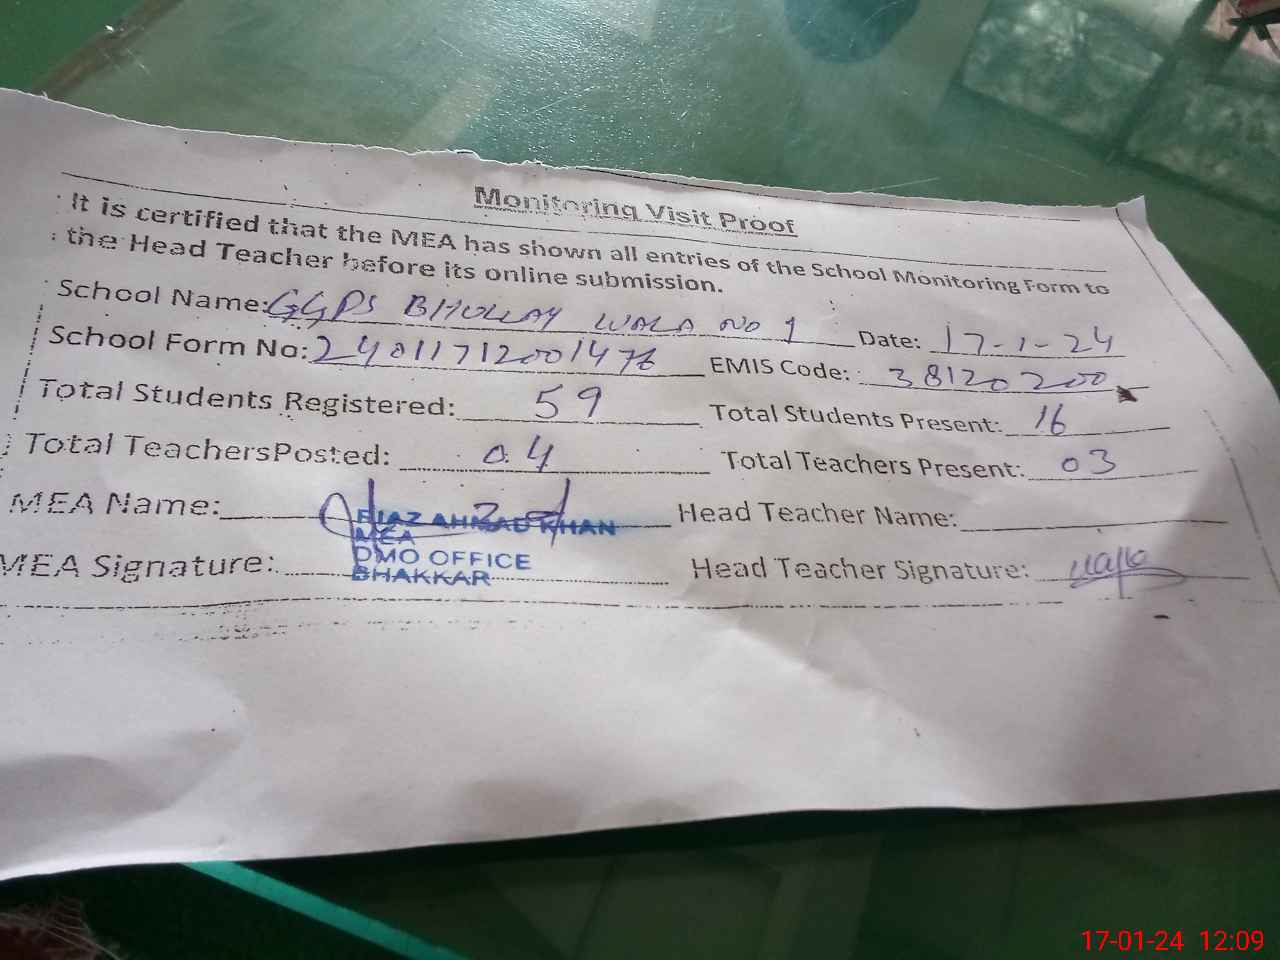 Monitoring Visit Proof
It is certified that the MEA has shown all entries of the School Monitoring Form to
the Head Teacher before its online submission.
School Name: GGPS BHOLLAY WALA NO 1 Date: 17-1-24
School Form No: 2401171200147 EMIS Code: 38120200
Total Students Registered: 59 Total Students Present: 16
Total TeachersPosted: 04 Total Teachers Present: 03
MEA Name: Head Teacher Name:
FIAZ AHMAD KHAN
MEA
DMO OFFICE
BHAKKAR
MEA Signature: Head Teacher Signature:
17-01-24 12:09